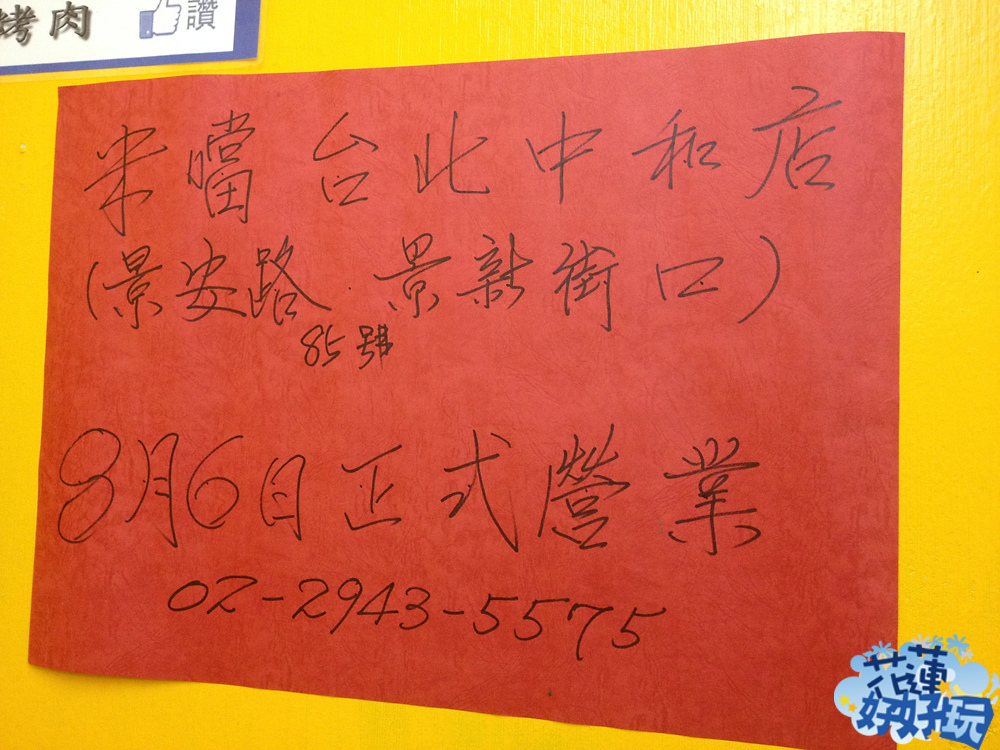 烤肉
讚
米噹台北中和店
(景安路 景新街口)
85號
8月6日正式營業
02-2943-5575
花蓮
好好玩